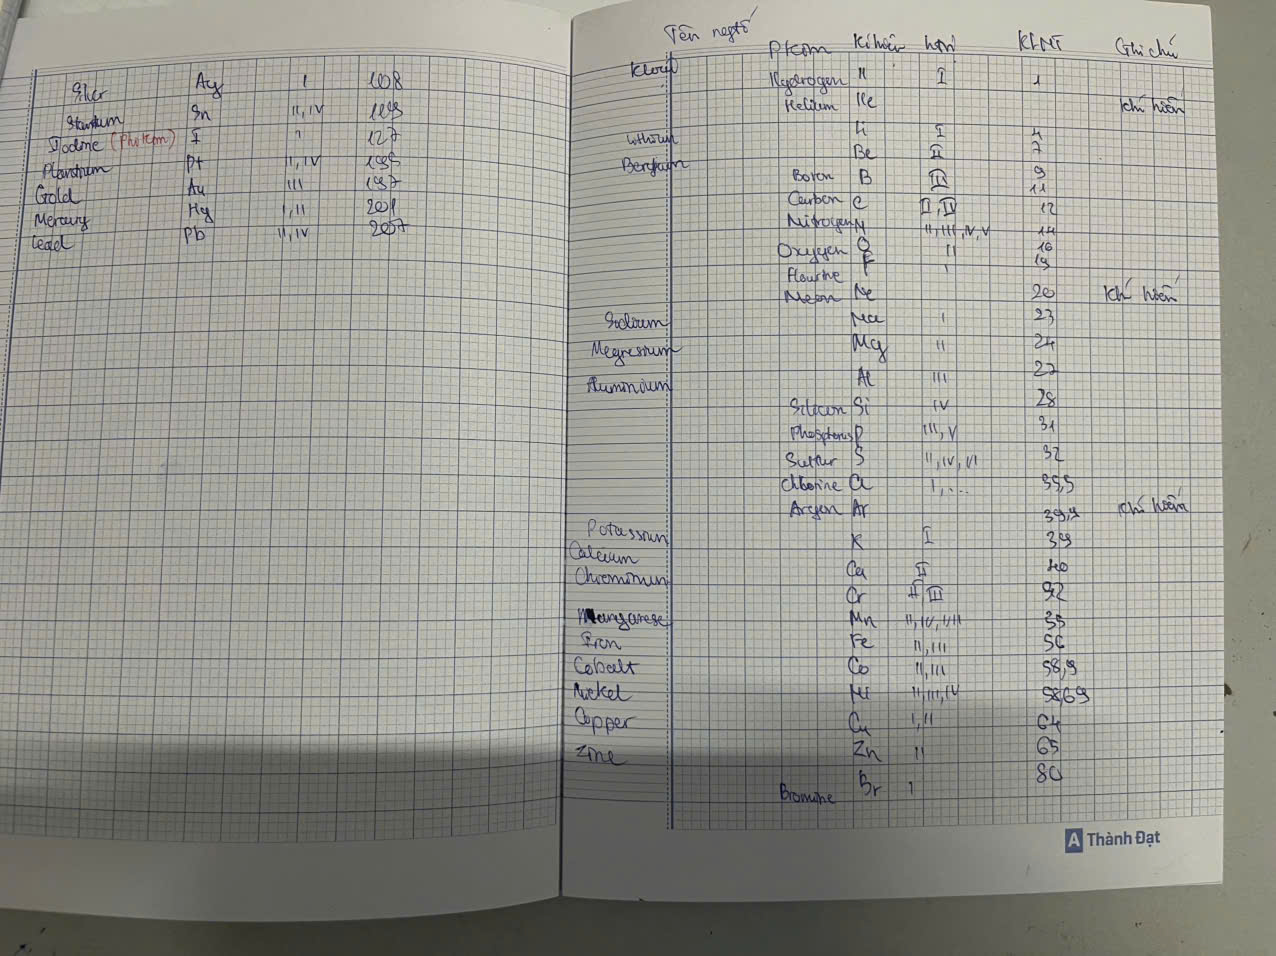 Silver Ag I 108
Stantum Sn II, IV 119
Iodine (Phi kim) I I 127
Planstium Pt II, IV 195
Gold Au III 197
Mercury Hg I, II 201
Lead Pb II, IV 207
Tên ngtố
K loại P kim Kí hiệu htrị KLNT Ghi chú
Hydrogen H I 1
Helium He Khí hiếm
Lithium Li I 4
Berylium Be II 7
Boron B III 9
11
Carbon C II, IV 12
Nitrogen N II, III, IV, V 14
Oxygen O II 16
Flourine F I 19
Neon Ne 20 Khí hiếm
Sodium Na I 23
Megnesium Mg II 24
Aluminium Al III 27
Silicon Si IV 28
Phosphorus P III, V 31
Sulfur S II, IV, VI 32
Chlorine Cl I, ... 35,5
Argon Ar 39,9 Khí hiếm
Potassium K I 39
Calcium Ca II 40
Chromimum Cr II III 52
Manganese Mn II, IV, VII 55
Iron Fe II, III 56
Cobalt Co II, III 58,9
Nickel Ni II, III, IV 58,69
Copper Cu I, II 64
Zinc Zn II 65
Bromine Br I 80
A Thành Đạt